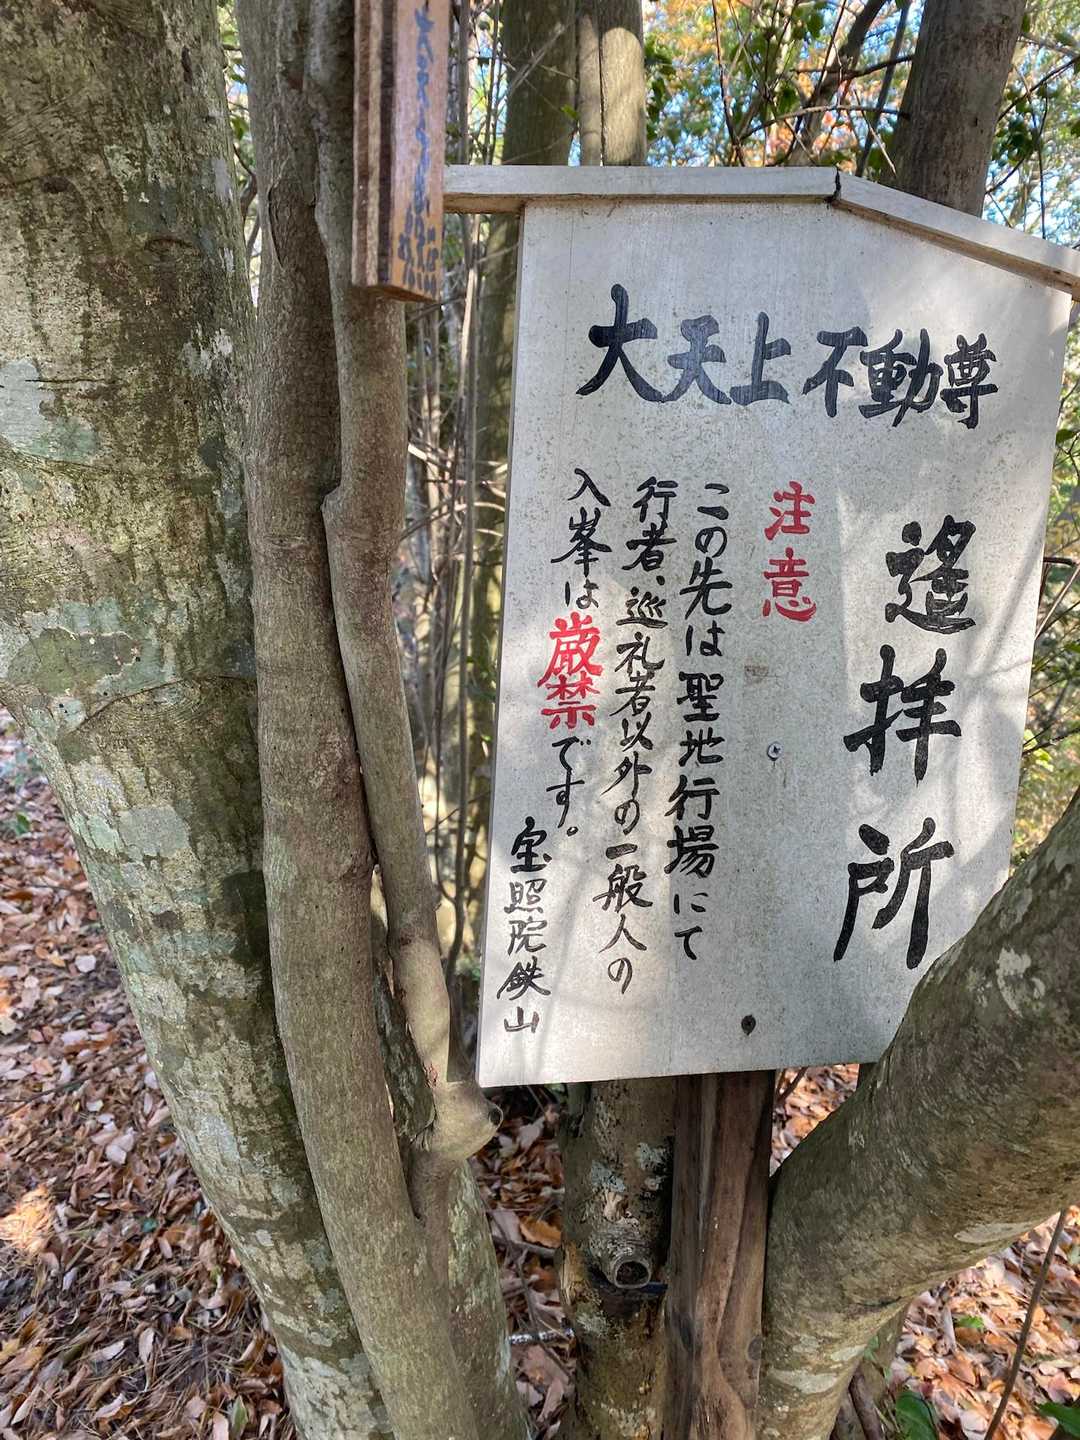 大天上不動尊
遙拝所
注意
この先は聖地行場にて
行者、巡礼者以外の一般人の
入峯は厳禁です。
宝照院鉄山